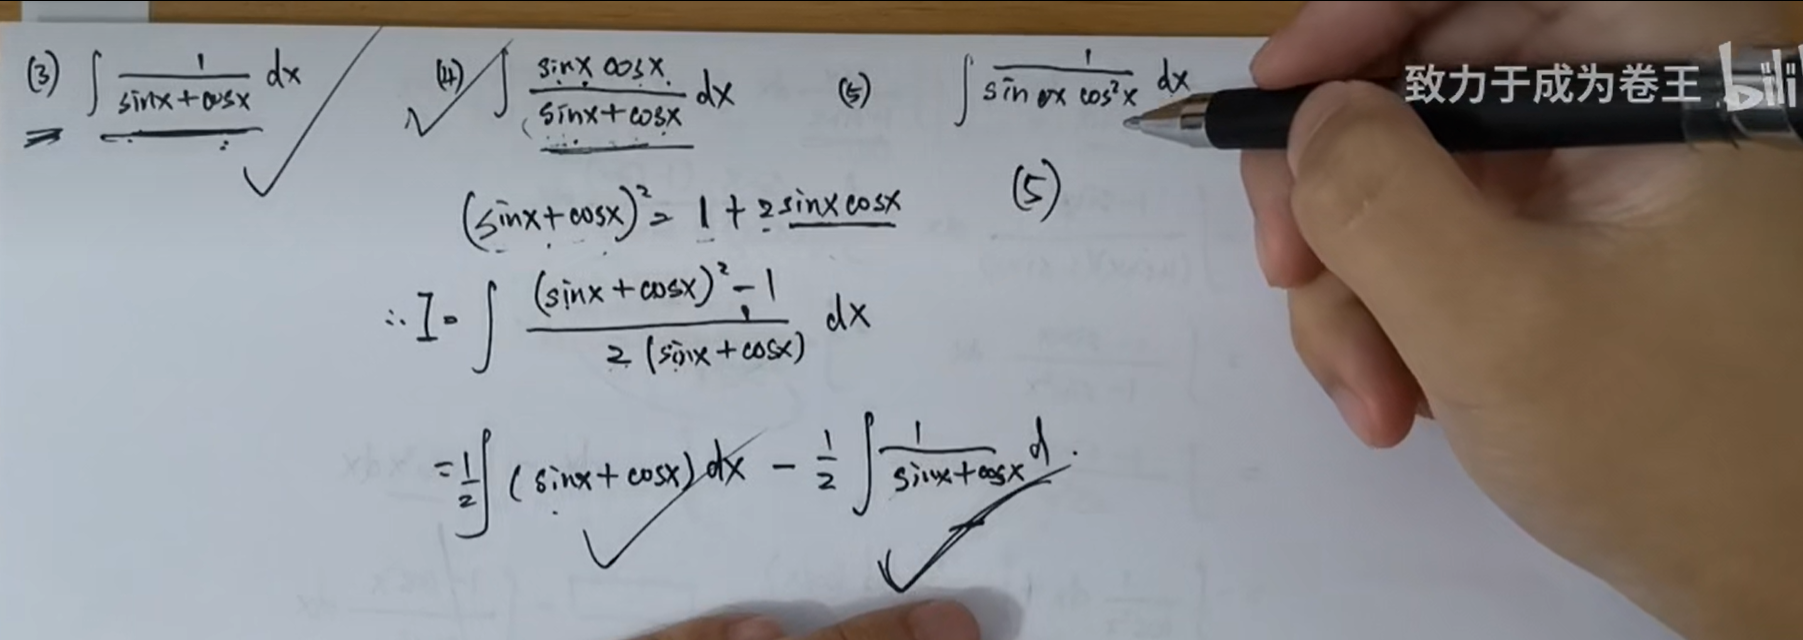 (3) ∫ 1/(sinx+cosx) dx (4) ∫ (sinx cosx)/(sinx+cosx) dx (5) ∫ 1/(sin x cos²x) dx
致力于成为卷王 bili
(5)
(sinx+cosx)² = 1 + 2sinxcosx
∴ I = ∫ ((sinx+cosx)² - 1)/(2(sinx+cosx)) dx
= 1/2 ∫ (sinx+cosx) dx - 1/2 ∫ 1/(sinx+cosx) d.